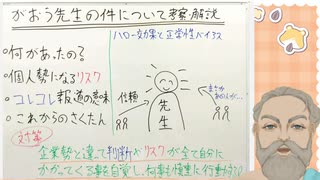 がおう先生の件について考察・解説
ハロー効果と正常性バイアス
・何があったの?
・個人勢になるリスク
・コレコレ報道の意味
・これからのさくたん
信頼
先生
まさか
対策
企業勢と違って判断やリスクが全て自分に
かかってくる事を自覚し、何事も慎重に行動せよ